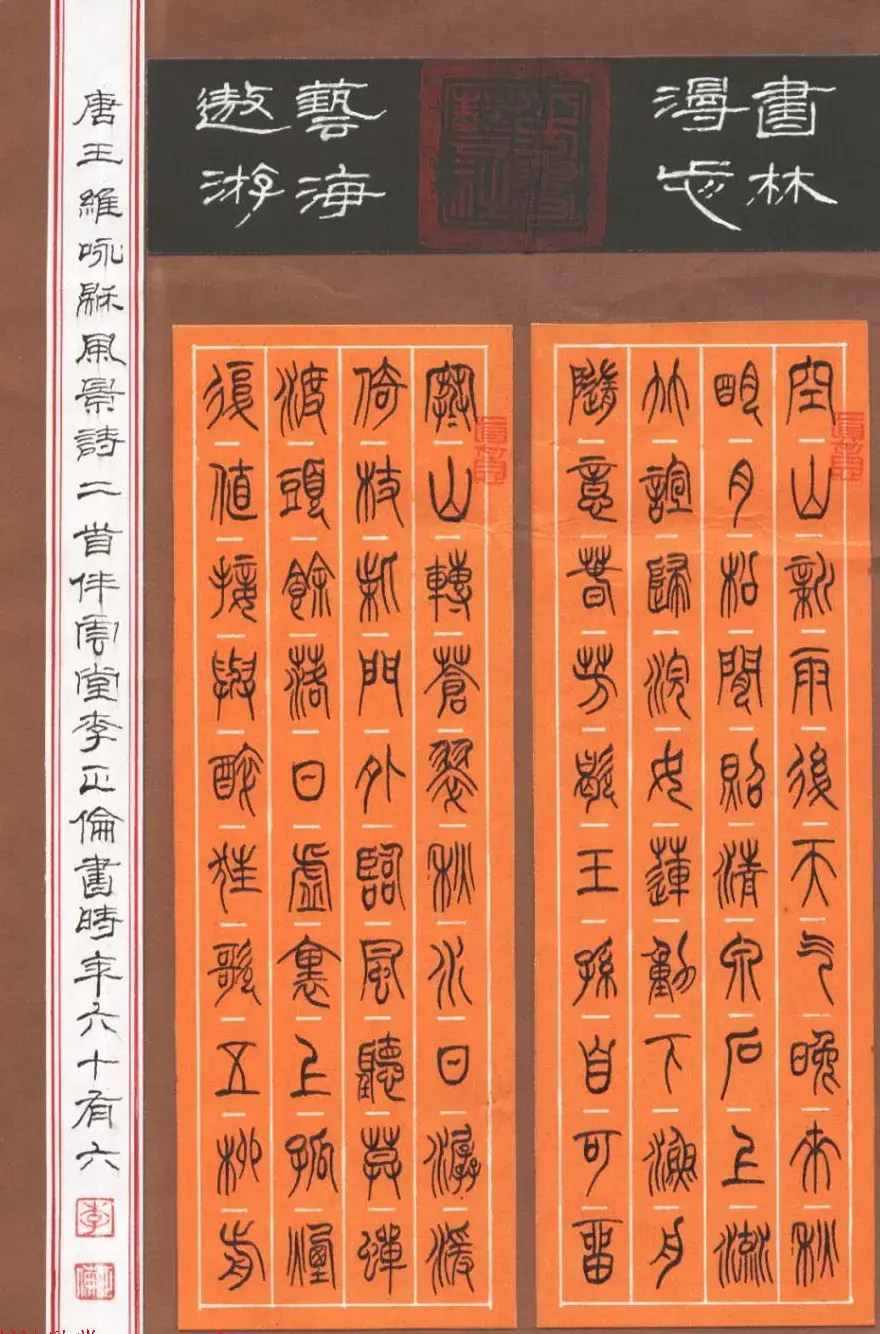 書林
漫步
藝海
遨游
空山新雨後天气晚來秋
明月松間照清泉石上流
竹諠歸浣女蓮動下漁舟
隨意春芳歇王孫自可留
寒山轉蒼翠秋水日潺湲
倚杖柴門外臨風聽暮蟬
渡頭餘落日虛裏上孤煙
復值接輿醉狂歌五柳前
唐王維咏穌風景詩二首伴雲堂李正倫書時年六十有六
李